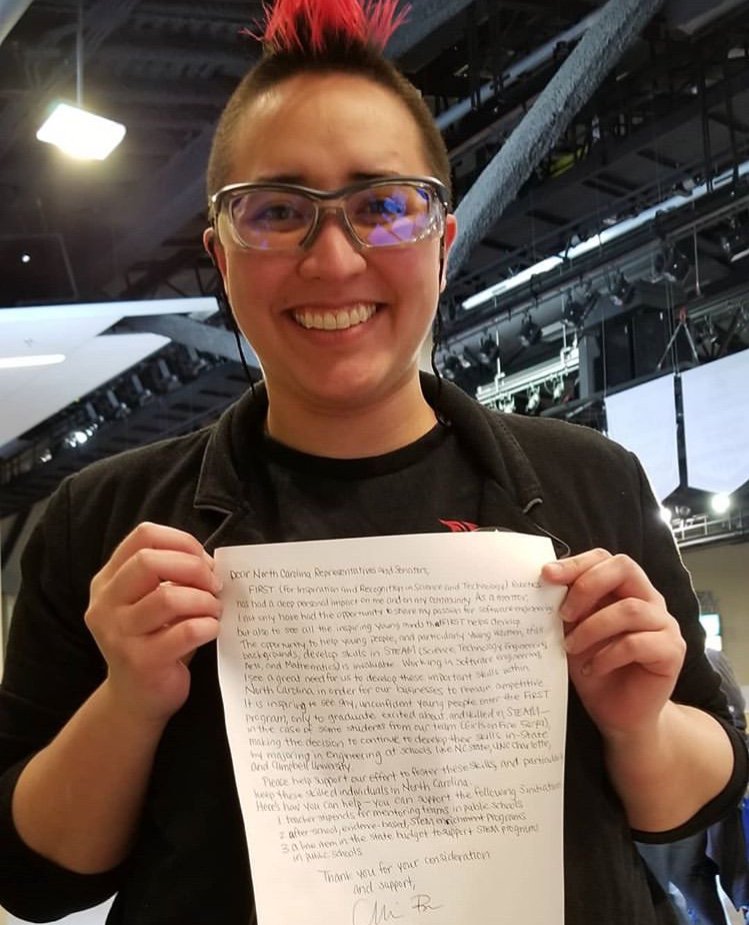 Dear North Carolina Representatives and Senators,
FIRST (For Inspiration and Recognition in Science and Technology) Robotics
has had a deep personal impact on me and on my community. As a mentor,
I not only have had the opportunity to share my passion for software engineering
but also to see all the inspiring young minds that FIRST helps develop.
The opportunity to help young people, and particularly young women, of all
backgrounds, develop skills in STEAM (Science, Technology, Engineering,
Arts, and Mathematics) is invaluable. Working in software engineering,
I see a great need for us to develop these important skills within
North Carolina in order for our businesses to remain competitive.
It is inspiring to see shy, unconfident young people enter the FIRST
program, only to graduate excited about and skilled in STEAM —
in the case of some students from our team (Girls on Fire
making the decision to continue to develop their skills in-state
by majoring in Engineering at schools like NC State, UNC Charlotte,
and Campbell University.
Please help support our effort to foster these skills, and particularly
keep these skilled individuals in North Carolina.
Here's how you can help — you can support the following 3 initiatives
1. teacher stipends for mentoring teams in public schools
2. after-school, evidence-based, STEM enrichment programs
3. a line item in the state budget to support STEM programs
in public schools.
Thank you for your consideration
and support,